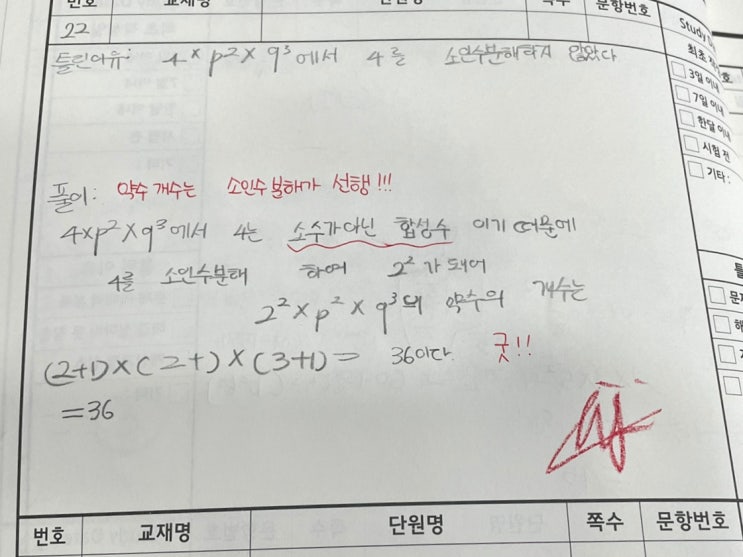 번호 교재명 단원명 쪽수 문항번호
22
틀린이유: 4×p²×q³에서 4를 소인수분해하지 않았다
풀이: 약수 개수는 소인수분해가 선행!!!
4×p²×q³에서 4는 소수가아닌 합성수 이기 때문에
4를 소인수분해 하여 2²가 되어
2²×p²×q³의 약수의 개수는
(2+1)×(2+)×(3+1)= 36이다. 굿!!
=36
Study
최초
3일 이내
7일 이내
한달 이내
시험 전
기타:
번호 교재명 단원명 쪽수 문항번호